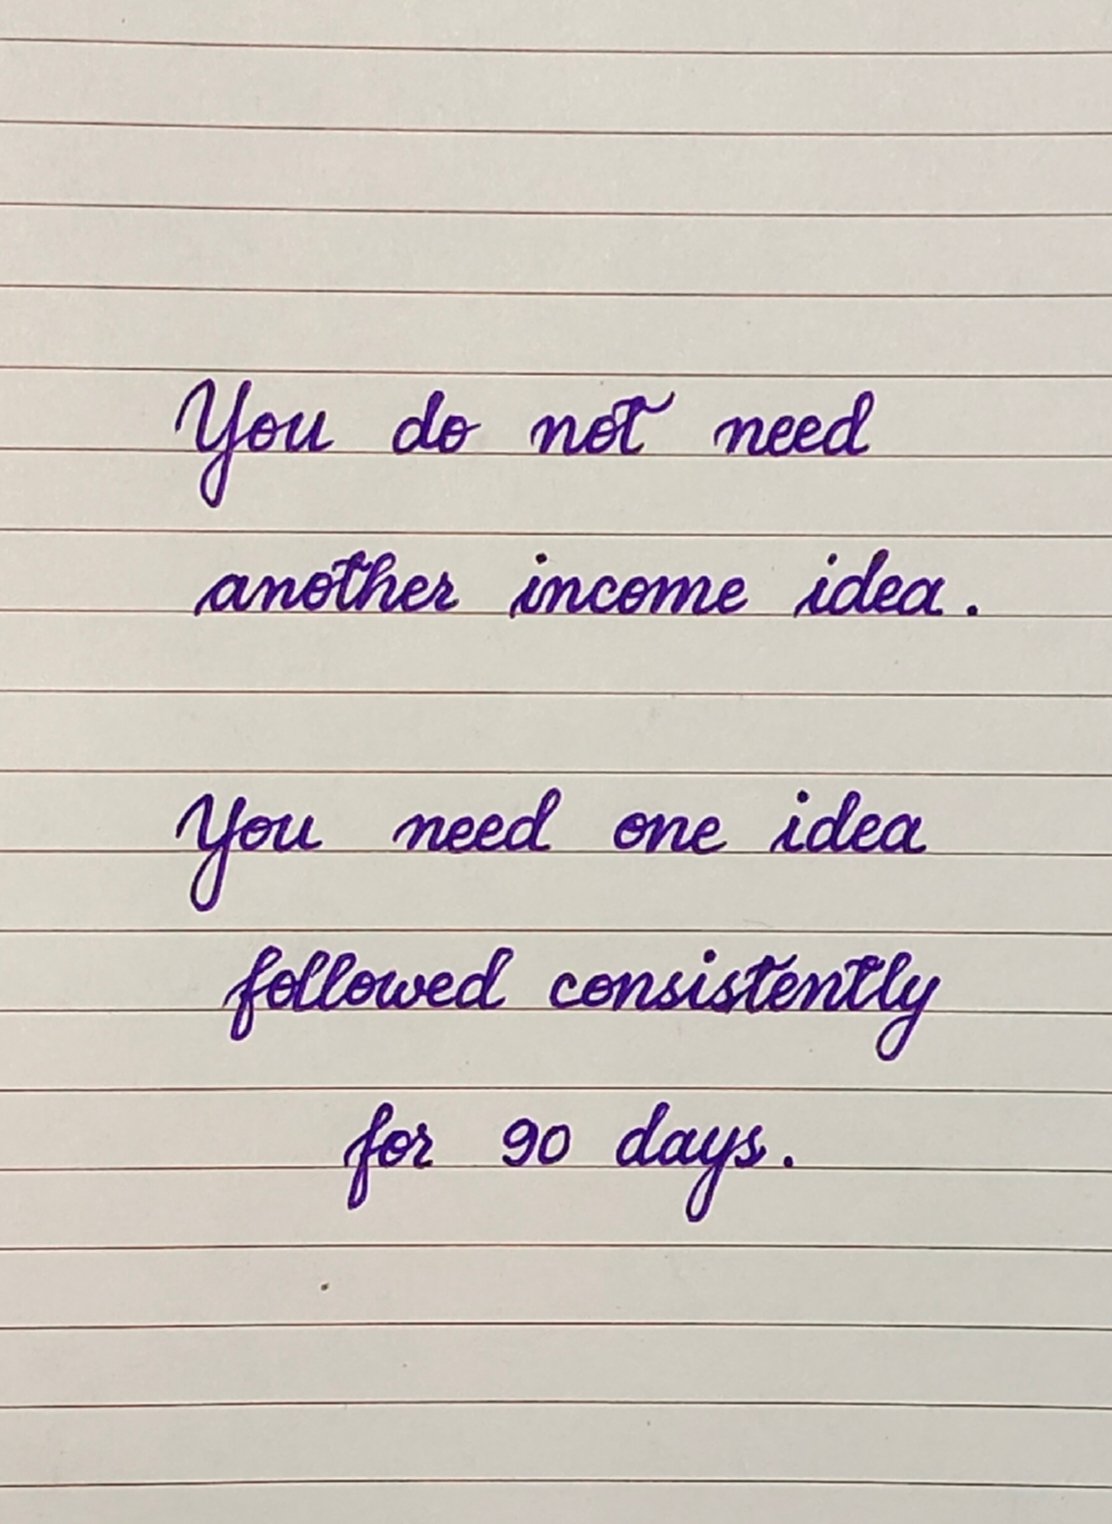 You do not need
another income idea.
You need one idea
followed consistently
for 90 days.